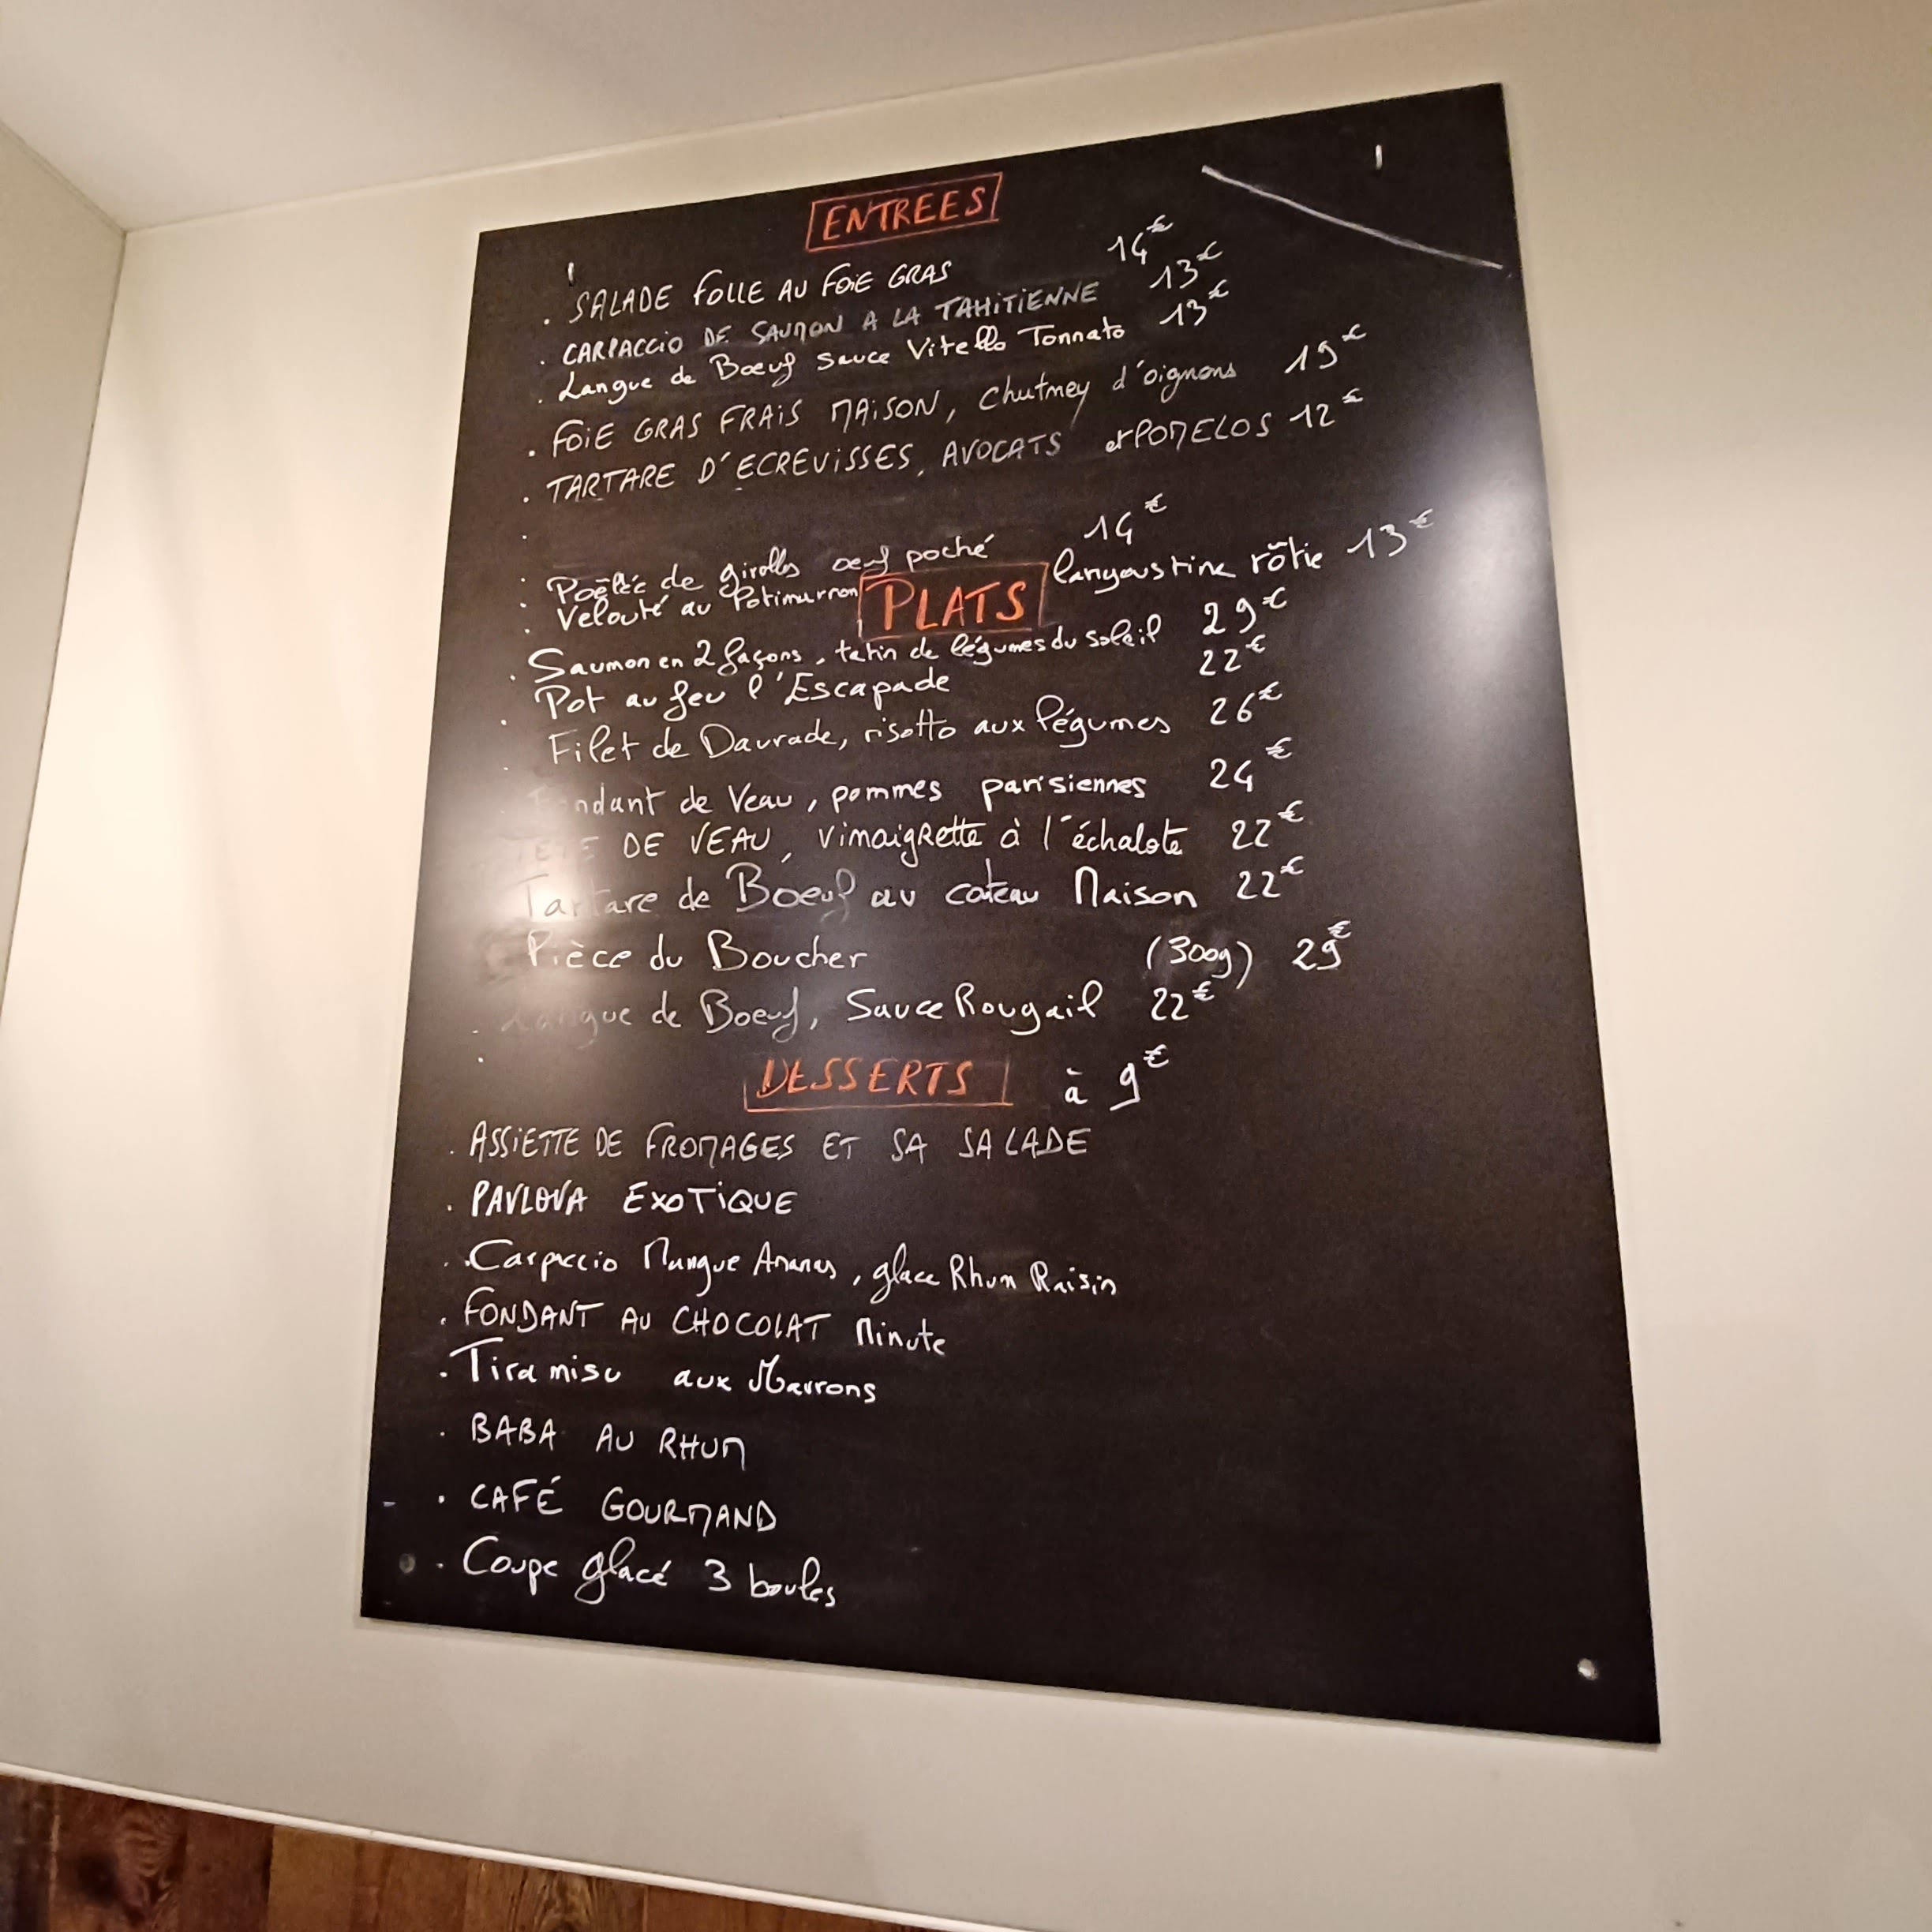 ENTREES
. SALADE FOLLE AU FOIE GRAS 14€
. CARPACCIO DE SAUMON A LA TAHITIENNE 13€
. Langue de Boeuf sauce Vitello Tonnato 13€
. FOIE GRAS FRAIS MAISON, Chutney d'oignons 19€
. TARTARE D'ECREVISSES, AVOCATS et POMELOS 12€
. Poêlée de girolles oeuf poché 14€
. Velouté au Potimarron langoustine rôtie 13€
PLATS
. Saumon en 2 façons, tatin de légumes du soleil 29€
. Pot au feu l'Escapade 22€
. Filet de Daurade, risotto aux légumes 26€
Fondant de Veau, pommes parisiennes 24€
TETE DE VEAU, vinaigrette à l'échalote 22€
Tartare de Boeuf au couteau Maison 22€
Pièce du Boucher (300g) 29€
. Langue de Boeuf, Sauce Rougail 22€
DESSERTS à 9€
. ASSIETTE DE FROMAGES ET SA SALADE
. PAVLOVA EXOTIQUE
. Carpaccio Mangue Ananas, glace Rhum Raisin
. FONDANT AU CHOCOLAT Minute
. Tiramisu aux Marrons
. BABA AU RHUM
. CAFÉ GOURMAND
. Coupe glacé 3 boules